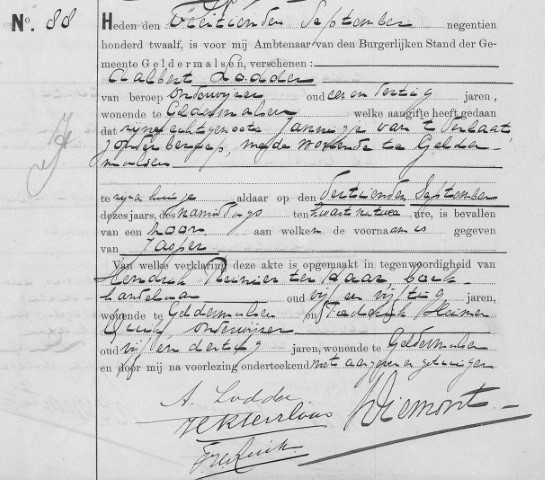 No. 88
Heden den Veertienden September negentien
honderd twaalf, is voor mij Ambtenaar van den Burgerlijken Stand der Ge-
meente Geldermalsen, verschenen:
Aalbert Lodder
van beroep onderwijzer oud een en dertig jaren,
wonende te Geldermalsen welke aangifte heeft gedaan
dat zijne echtgenoote Jannigje van 't Verlaat,
zonder beroep, mede wonende te Gelder-
malsen,
te zijnen huize aldaar op den Dertienden September
dezes jaars, des namiddags ten ure, is bevallen
van een zoon aan welken de voornaam is gegeven
van Jasper
Van welke verklaring deze akte is opgemaakt in tegenwoordigheid van
Hendrik Reinier ter Haar, boek-
handelaar oud vijf en vijftig jaren,
wonende te Geldermalsen en Frederik
onderwijzer
oud vijf en dertig jaren, wonende te Geldermalsen
en door mij na voorlezing onderteekend met aangever en getuigen
A. Lodder
HRterHaar
Diemont